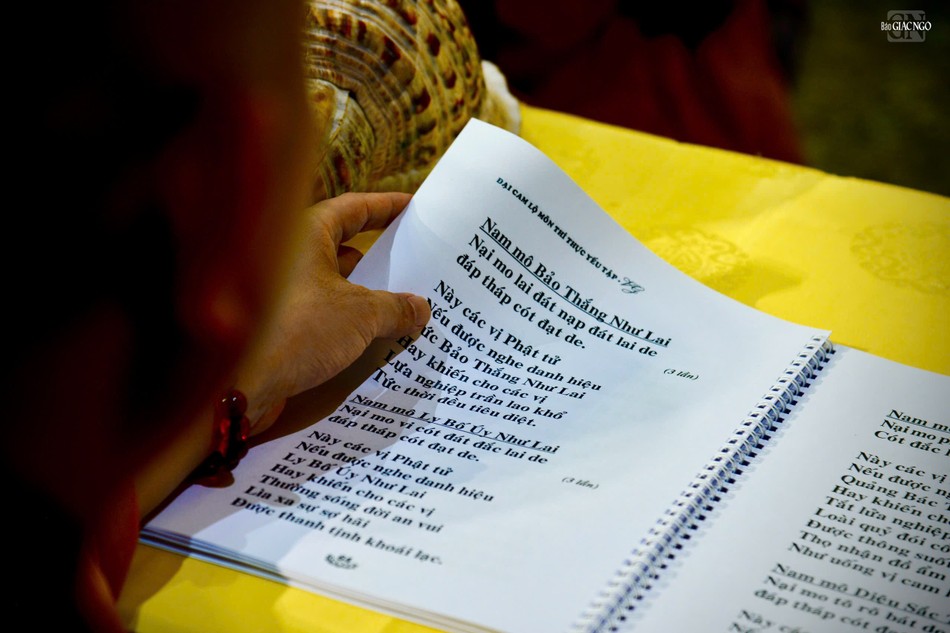 Báo GIÁC NGỘ
ĐẠI CAM LỘ MÔN THÍ THỰC YẾU TẬP
Nam mô Bảo Thắng Như Lai
Nại mo lai đát nạp đát lai de
đáp tháp cót đạt de.
(3 lần)
Này các vị Phật tử
Nếu được nghe danh hiệu
Đức Bảo Thắng Như Lai
Hay khiến cho các vị
Lửa nghiệp trần lao khổ
Tức thời đều tiêu diệt.
Nam mô Ly Bố Úy Như Lai
Nại mo vi cót đát đắc lai de
đáp tháp cót đạt de.
(3 lần)
Này các vị Phật tử
Nếu được nghe danh hiệu
Ly Bố Úy Như Lai
Hay khiến cho các vị
Thường sống đời an vui
Lìa xa sự sợ hãi
Được thanh tịnh khoái lạc.
Nam
Nại mo
Cót đắc
Này các vị
Nếu được n
Quảng Bác
Hay khiến c
Tất lửa nghiệp
Loài quỷ đói c
Được thông suố
Thọ nhận đồ ẩm
Như uống vị cam
Nam mô Diệu Sắc
Nại mo tô rô bát
đáp tháp cót đạt